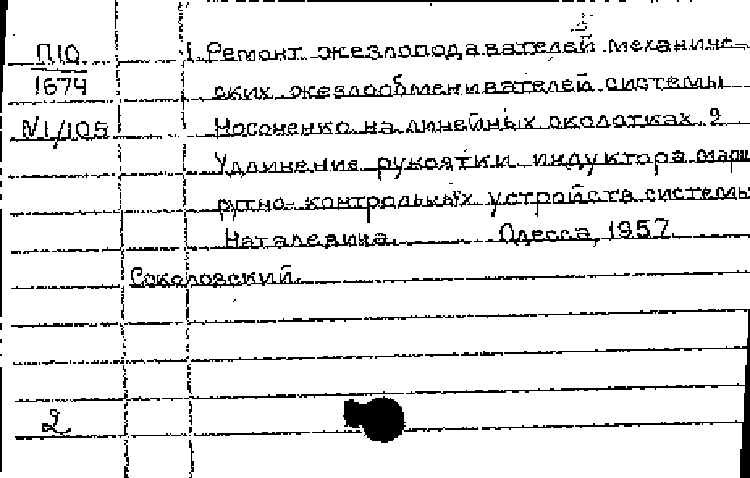 П10
1674
№1/105
1. Ремонт жезлоподавателей механиче-
ских жезлообменивателей системы
Носоненко на линейных околотках. 2
Удлинение рукоятки индуктора марш
рутно-контрольных устройств системы
Наталевича. Одесса, 1957.
Соколовский.
2